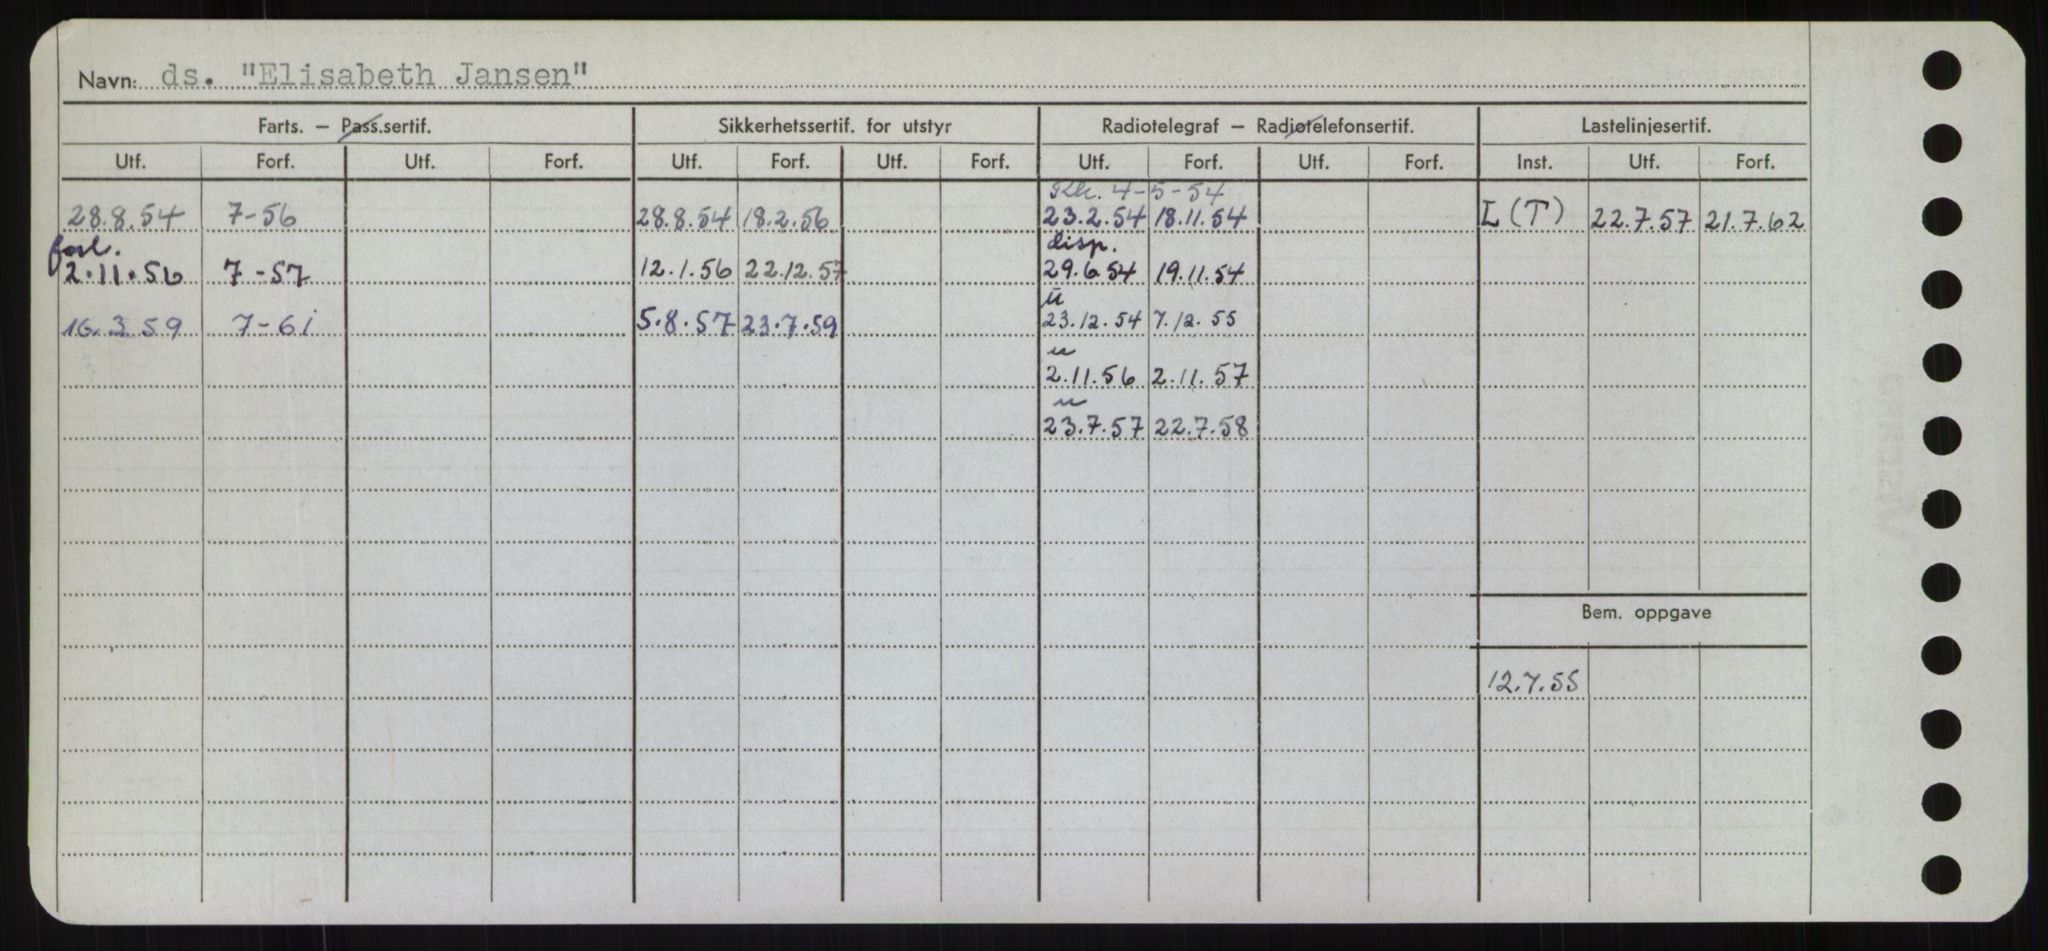 Navn: ds. "Elisabeth Jansen"
Farts. – Pass.sertif. Sikkerhetssertif. for utstyr Radiotelegraf – Radiotelefonsertif. Lastelinjesertif.
Utf. Forf. Utf. Forf. Utf. Forf. Utf. Forf. Utf. Forf. Utf. Forf. Inst. Utf. Forf.
4-5-54
28.8.54 7-56 28.8.54 18.2.56 23.2.54 18.11.54 L (T) 22.7.57 21.7.62
forl. disp.
2.11.56 7-57 12.1.56 22.12.57 29.6.54 19.11.54
u
16.3.59 7-61 5.8.57 23.7.59 23.12.54 7.12.55
u
2.11.56 2.11.57
u
23.7.57 22.7.58
Bem. oppgave
12.7.55